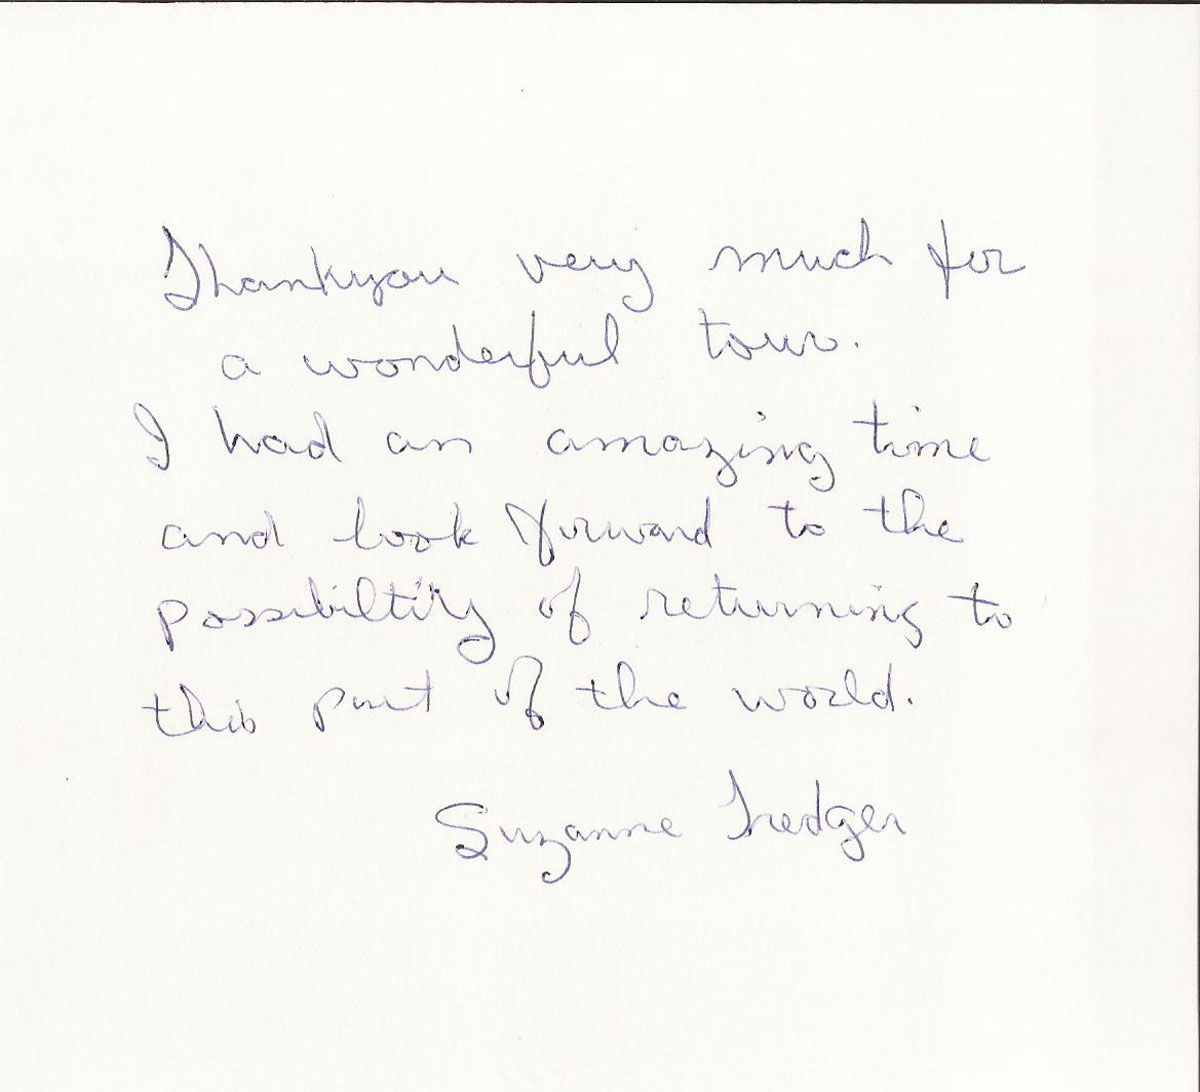 Thankyou very much for
a wonderful tour.
I had an amazing time
and look forward to the
possibiltity of returning to
this part of the world.
Suzanne Tredger